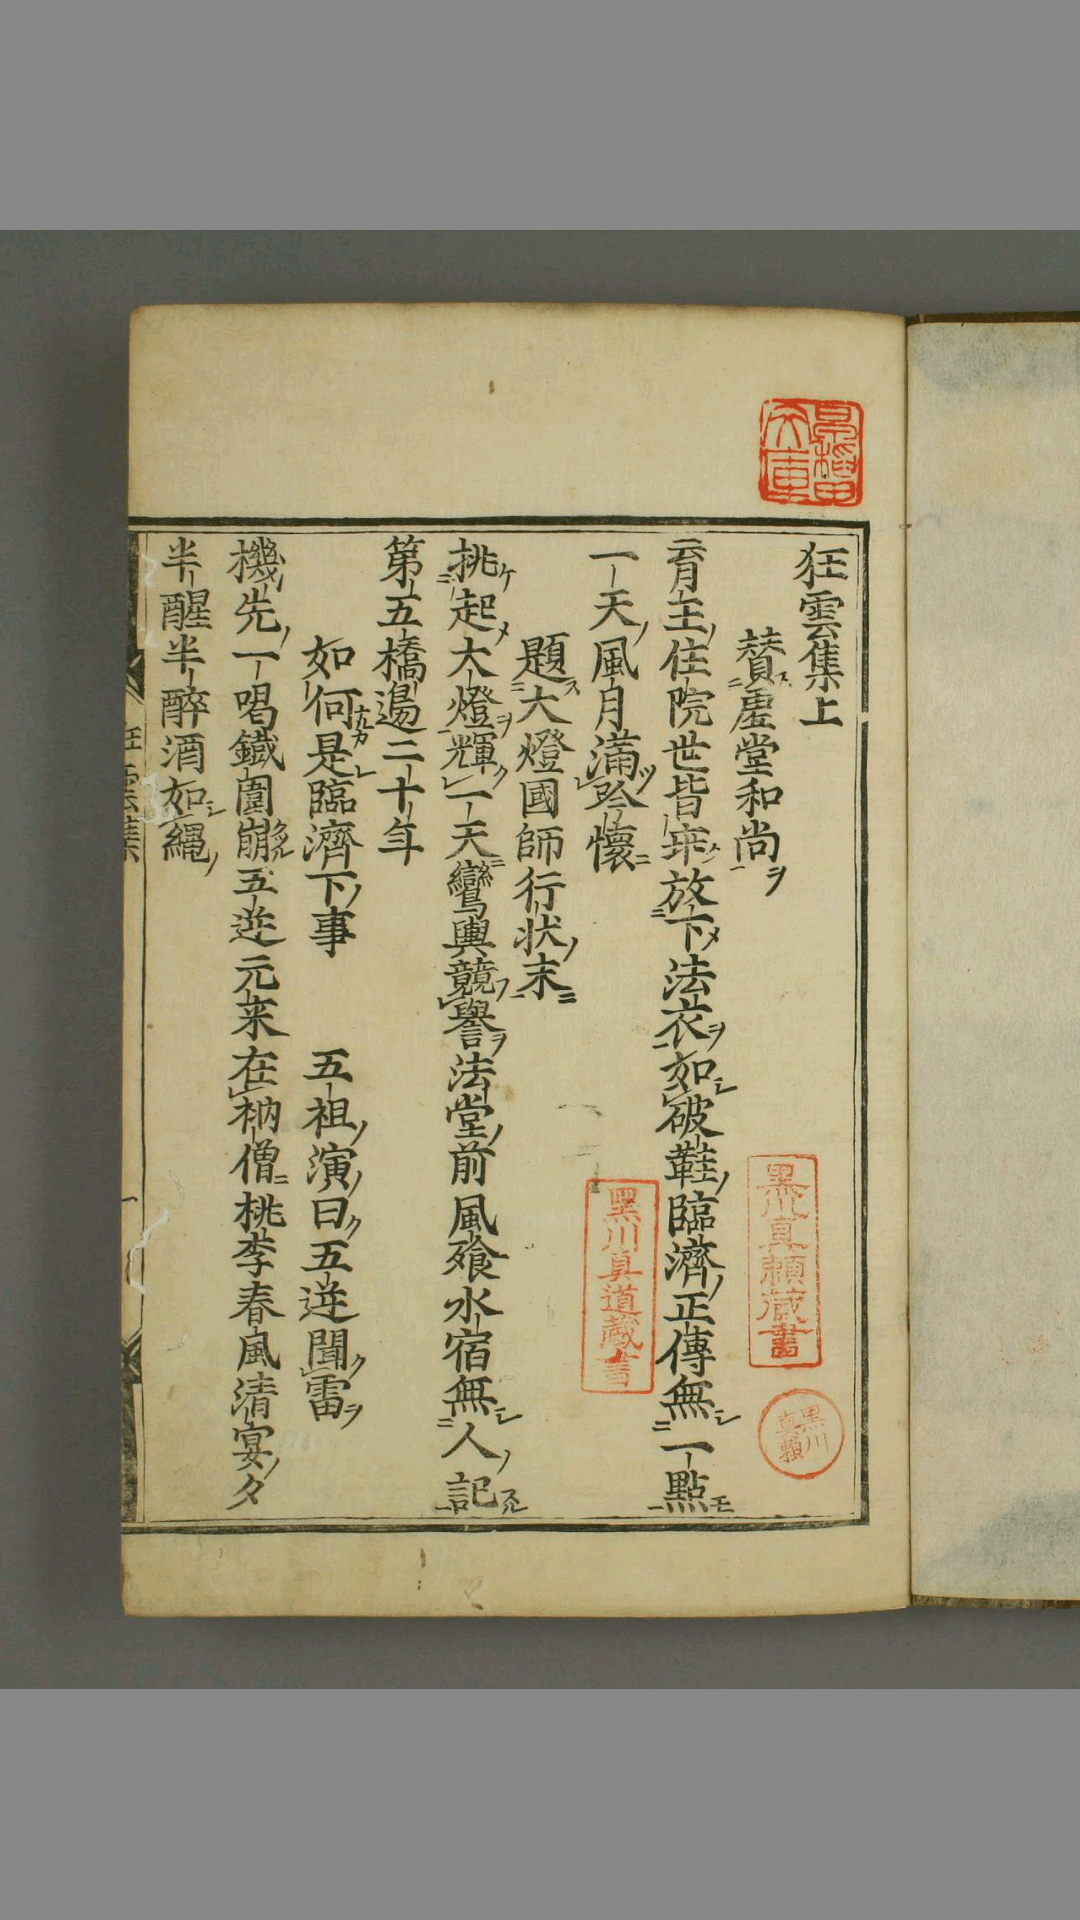 狂雲集上
賛虚堂和尚
育王住院世皆乖放下法衣如破鞋臨濟正傳無一點
一天風月滿吟懷
題大燈國師行状末
挑起大燈輝一天鸞輿競譽法堂前風飡水宿無人記
第五橋邉二十年
如何是臨濟下事　五祖演曰五逆聞雷
機先一喝鐵圍崩五逆元来在衲僧桃李春風清宴夕
半醒半醉酒如縄
狂雲集
黒川真頼蔵書
黒川真頼
黒川真道蔵書